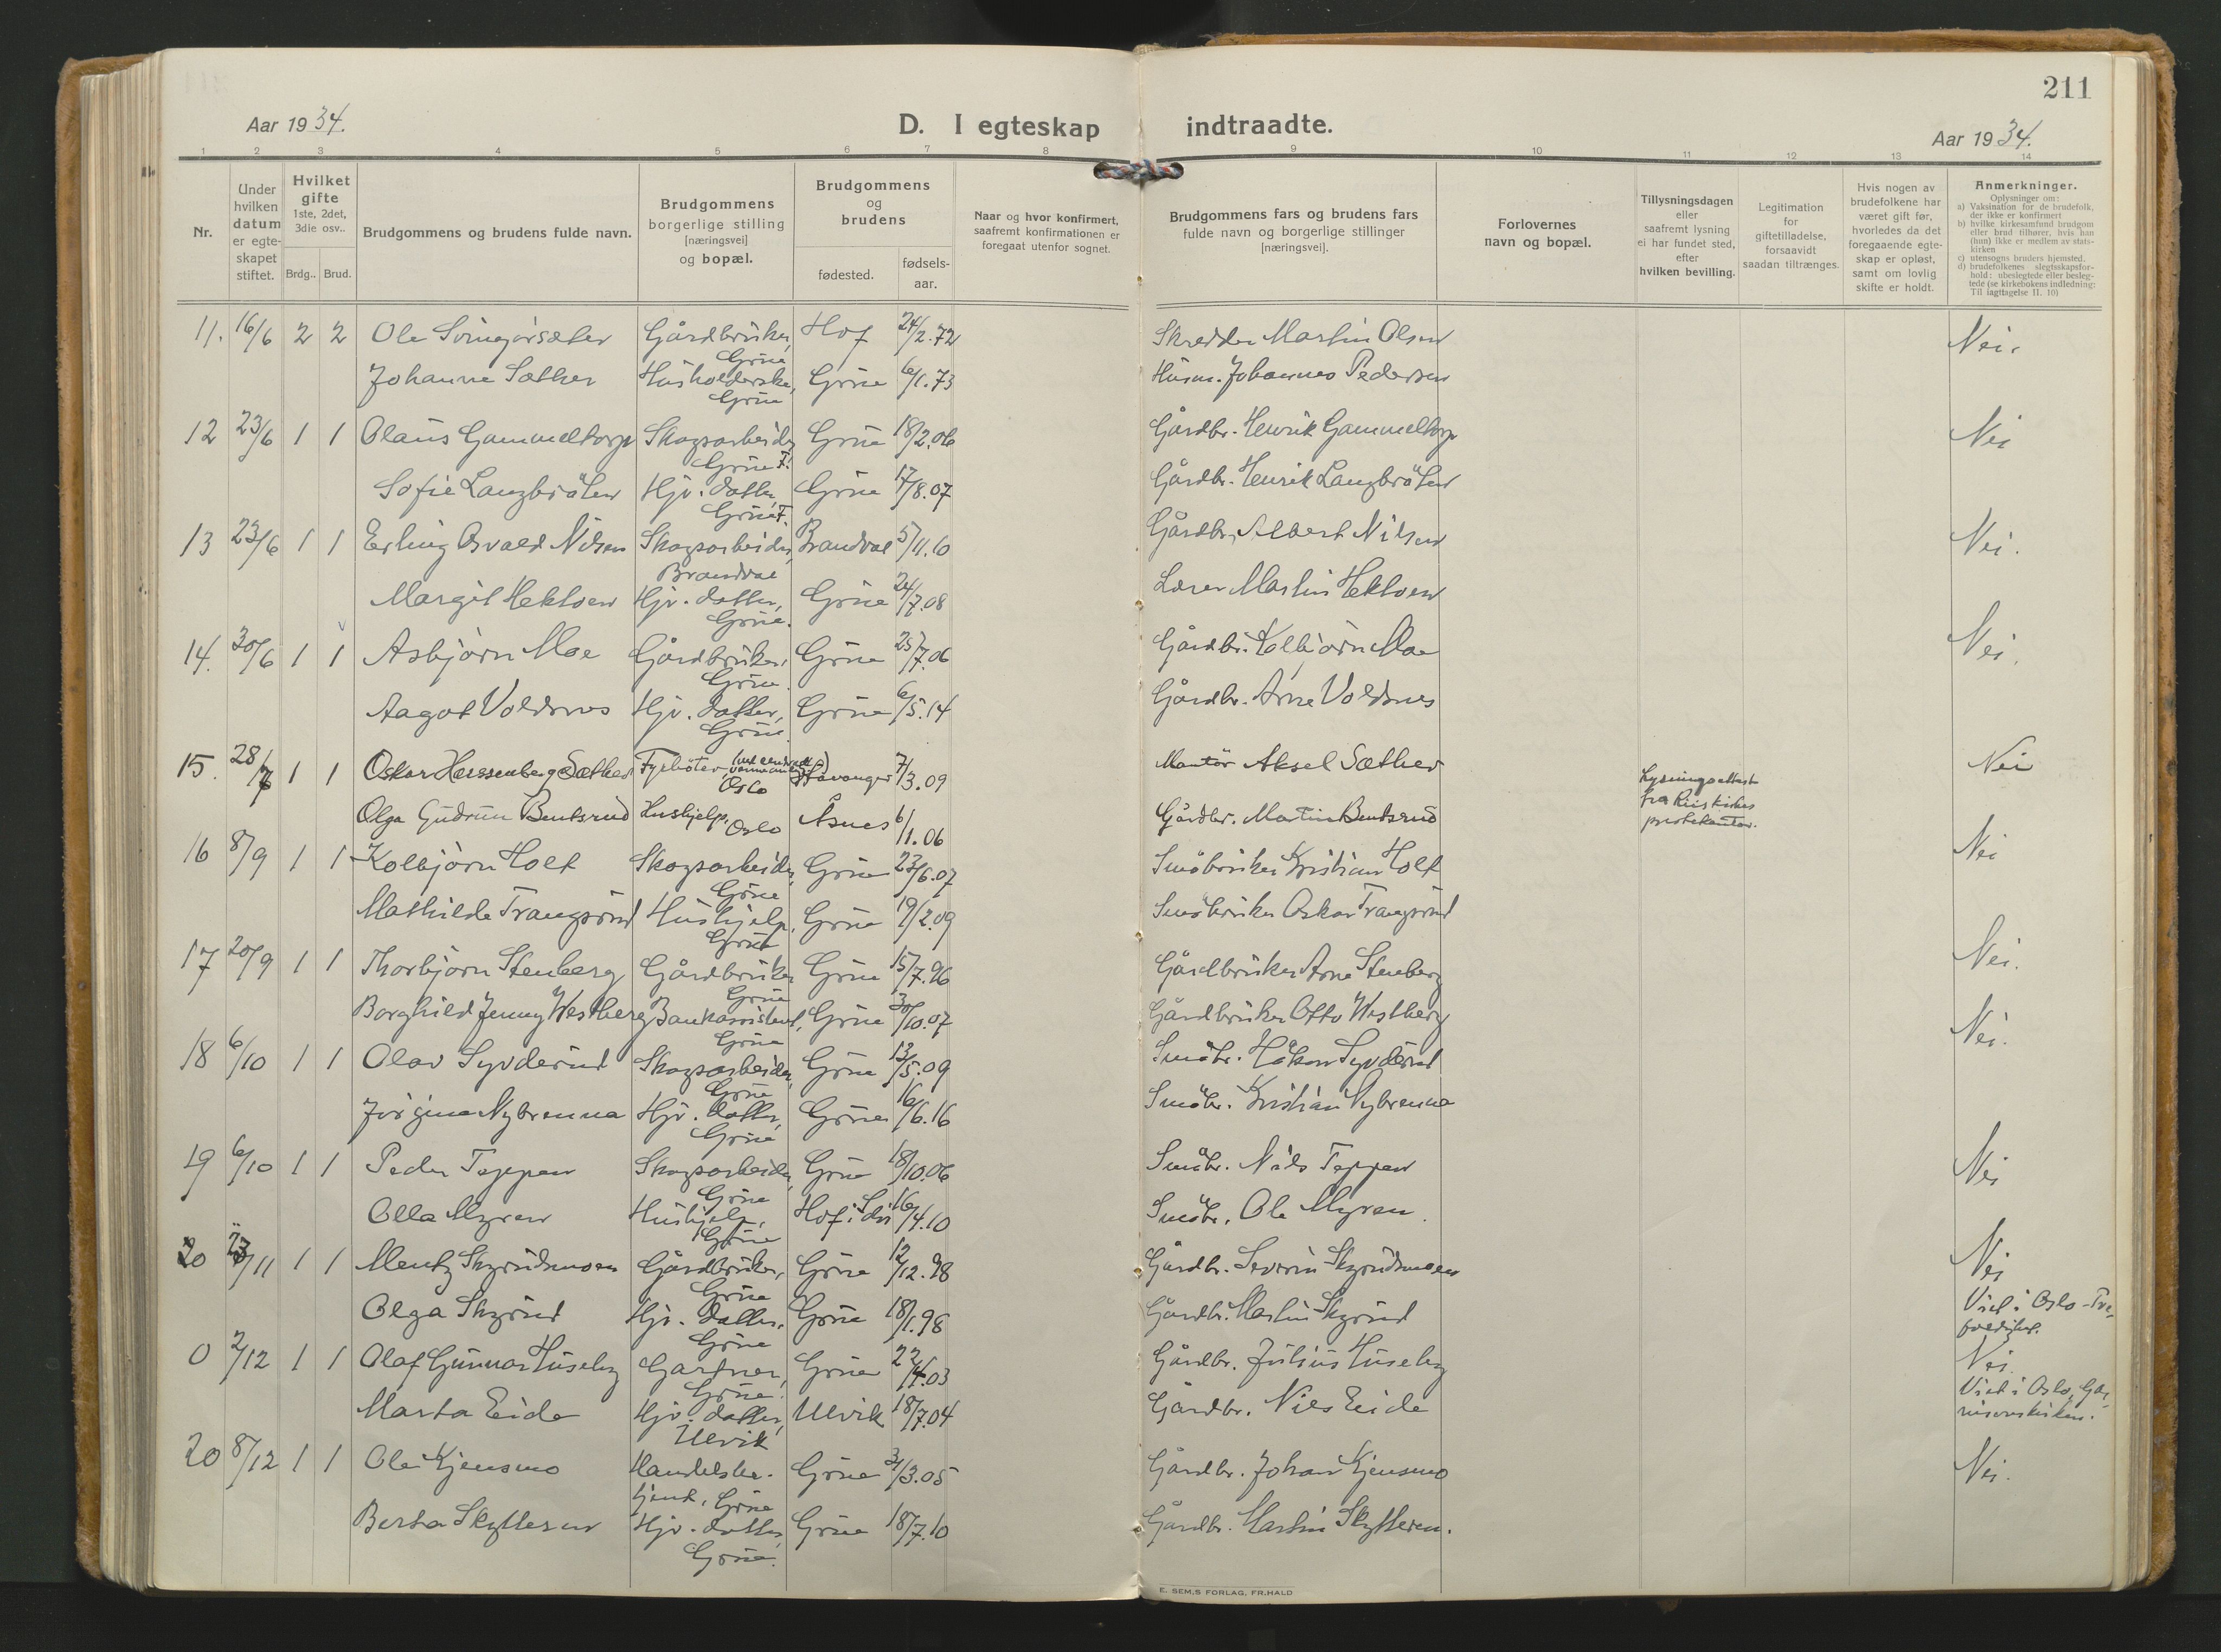 211
Aar 1934.
D. I egteskap indtraadte.
Aar 1934.
1 2 3 4 5 6 7 8 9 10 11 12 13 14
Nr.
Under hvilken datum er egteskapet stiftet.
Hvilket gifte 1ste, 2det, 3die osv..
Brdg.. Brud.
Brudgommens og brudens fulde navn.
Brudgommens borgerlige stilling [næringsvei] og bopæl.
Brudgommens og brudens
fødested.
fødsels-aar.
Naar og hvor konfirmert, saafremt konfirmationen er foregaat utenfor sognet.
Brudgommens fars og brudens fars fulde navn og borgerlige stillinger [næringsvei].
Forlovernes navn og bopæl.
Tillysningsdagen eller saafremt lysning ei har fundet sted, efter hvilken bevilling.
Legitimation for giftetilladelse, forsaavidt saadan tiltrænges.
Hvis nogen av brudefolkene har været gift før, hvorledes da det foregaaende egte-skap er opløst, samt om lovlig skifte er holdt.
Anmerkninger.
Oplysninger om:
a) Vaksination for de brudefolk, der ikke er konfirmert
b) hvilke kirkesamfund brudgom eller brud tilhører, hvis han (hun) ikke er medlem av stats-kirken
c) utensogns bruders hjemsted.
d) brudefolkenes slegtsskapsfor-hold: ubeslegtede eller besleg-tede (se kirkebokens indledning: Til iagttagelse II. 10)
11. 16/6 2 2 Ole Svingørsæter Gårdbruker, Grue Hof 24/2.72 Skredder Martin Olsen Nei.
Johanne Sæther Husholderske, Grue Grue 6/1.73 Husm. Johannes Pedersen
12 23/6 1 1 Olaus Gammeltorp Skogsarbeider Grue F. Grue 18/2.06 Gårdbr. Henrik Gammeltorp Nei
Sofie Langbråten Hjv. datter, Grue F. Grue 17/8.07 Gårdbr. Henrik Langbråten
13 23/6 1 1 Erling Osvald Nilsen Skogsarbeider, Brandval Brandval 5/11.10 Gårdbr. Albert Nilsen Nei.
Margit Hektoen Hjv. datter, Grue. Grue 24/7.08 Lærer Martin Hektoen
14. 30/6 1 1 Asbjørn Moe Gårdbruker, Grue. Grue 25/7.06 Gårdbr. Kolbjørn Moe Nei.
Aagot Voldsnes Hjv. datter, Grue. Grue 6/5.14 Gårdbr. Arne Voldsnes
15. 28/7 1 1 Oskar Sæther Fyrbøter Oslo Stavanger 7/3.09 Montør Aksel Sæther Lysningsattest fra Riis kirkes prestekontor. Nei
Olga Gudrun Bentsrud Hushjelp, Oslo Åsnes 6/1.06 Gårdbr. Martin Bentsrud
16 8/9 1 1 Kolbjørn Holt Skogsarbeider, Grue Grue 23/6.07 Småbruker Kristian Holt Nei
Mathilde Trangsrud Hushjelp, Grue Grue 19/2.09 Småbruker Oskar Trangsrud
17 20/9 1 1 Thorbjørn Stenberg Gårdbruker Grue Grue 15/7.96 Gårdbruker Arne Stenberg Nei.
Borghild Jenny Westberg Bankassistent, Grue Grue 30/10.07 Gårdbruker Otto Westberg
18 6/10 1 1 Olav Syverud Skogsarbeider, Grue Grue 13/5.09 Småbr. Håkon Nei.
Jørgine Nybrenna Hjv. datter, Grue Grue 16/6.16 Småbr. Kristian Nybrenna
19 6/10 1 1 Peder Teppen Skogsarbeider, Grue Grue 18/10.06 Småbr. Nils Teppen Nei
Olla Myren Hushjelp, Grue Hof i Solør 16/4.10 Småbr. Ole Myren.
20 23/11 1 1 Mentz Skyrudsmoen Gårdbruker, Grue Grue 12/12.98 Gårdbr. Severin Skyrudsmoen Nei
Olga Skyrud Hjv. datter, Grue Grue 18/1.98 Gårdbr. Martin Skyrud Viet i Oslo -Tre-foldighet.
0 2/12 1 1 Olaf Gunnar Huseby Gartner, Grue. Grue 22/4.03 Gårdbr. Julius Huseby Nei.
Marta Eide Hjv. datter, Ulvik Ulvik 18/7.04 Gårdbr. Nils Eide Viet i Oslo, Gar-nisonskirken.
20 8/12 1 1 Ole Kjensmo Handelsbe-tjent, Grue Grue 31/3.05 Gårdbr. Johan Kjensmo Nei.
Berta Skytteren Hjv. datter, Grue. Grue 18/7.10 Gårdbr. Martin Skytteren.
E. SEM,S FORLAG, FR.HALD